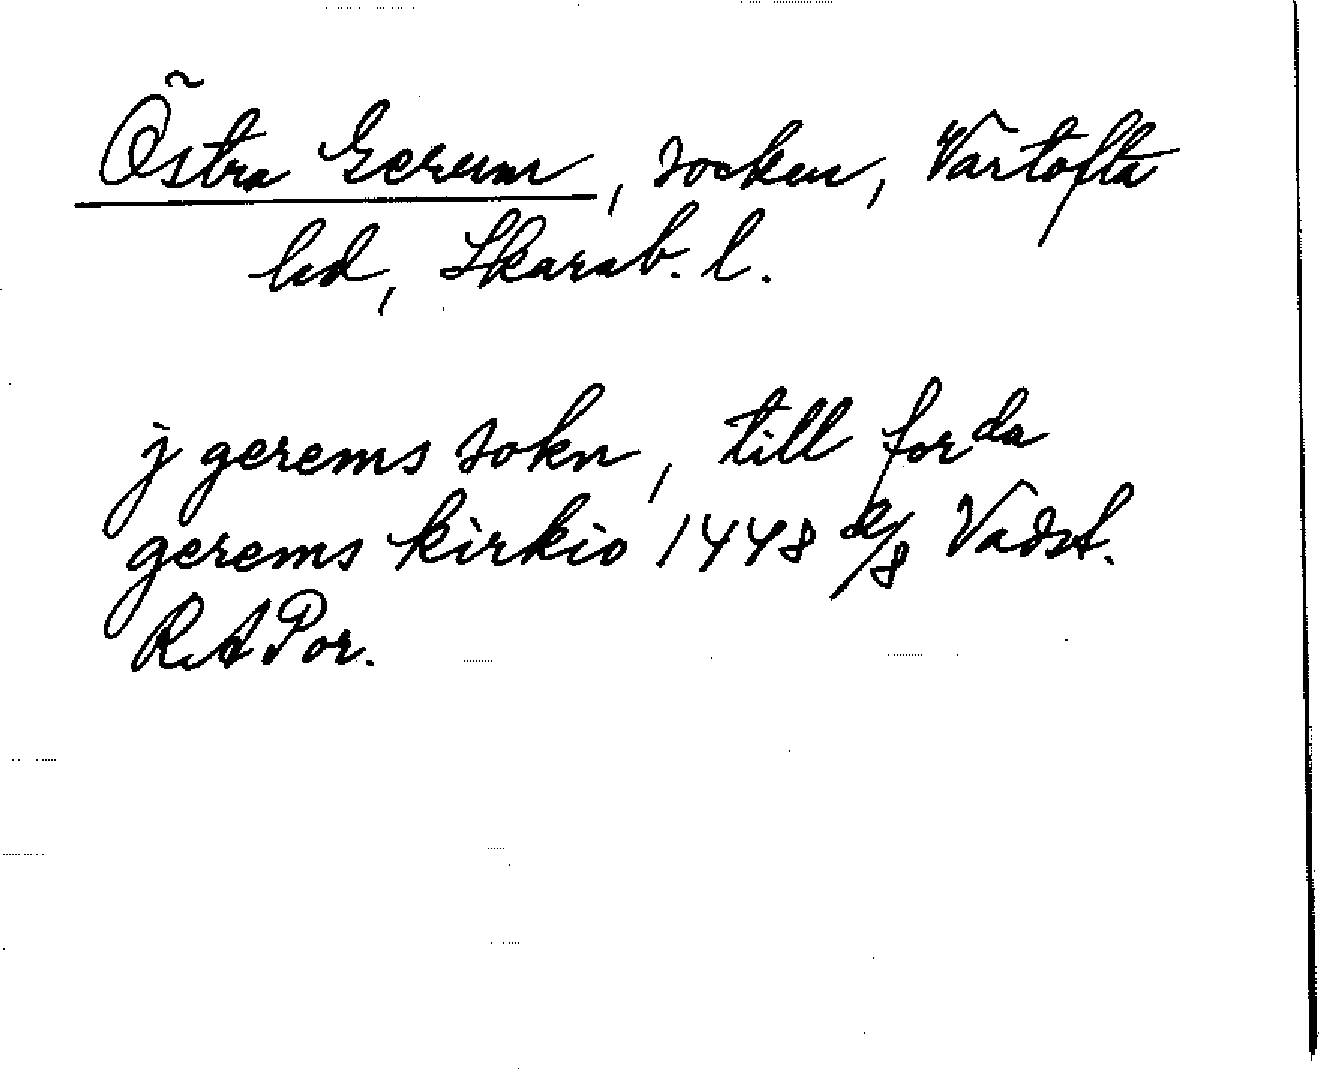 Östra Gerum, socken, Vartofta
hd, Skarab. l.
j gerems sokn, till forda
gerems kirkio 1448 /8 Vadst.
RAPor.